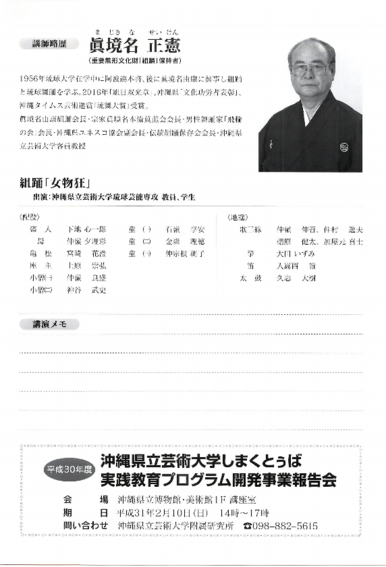 講師略歴
まじきな せいけん
眞境名 正憲
(重要無形文化財「組踊」保持者)
1956年琉球大学在学中に阿波連本啓、後に眞境名由康に師事し組踊
と琉球舞踊を学ぶ。2016年「旭日双光章」、沖縄県「文化功労者表彰」、
沖縄タイムス芸術選賞「琉舞大賞」受賞。
の会」会長・沖縄県ユネスコ協会副会長・伝統組踊保存会会長・沖縄県
立芸術大学客員教授
組踊「女物狂」
出演:沖縄県立芸術大学琉球芸能専攻 教員、学生
〈配役〉
盗人 下地 心一郎
母 仲嶺 夕理彩
亀松 宮崎 花澄
座主 上原 崇弘
小僧(一) 仲嶺 良盛
小僧(二) 神谷 武史
童(一) 石嶺
童(二) 金城 理穂
童(三) 仲宗根 朝子
〈地謡〉
歌三線 仲嶺 伸吾、仲村 逸夫
健太、
箏 大田 いずみ
笛 入嵩西 諭
太鼓 久志 大樹
講演メモ
平成30年度
沖縄県立芸術大学しまくとぅば
実践教育プログラム開発事業報告会
会 場 沖縄県立博物館・美術館1F 講座室
期 日 平成31年2月10日(日) 14時~17時
問い合わせ 沖縄県立芸術大学附属研究所 ☎098-882-5615